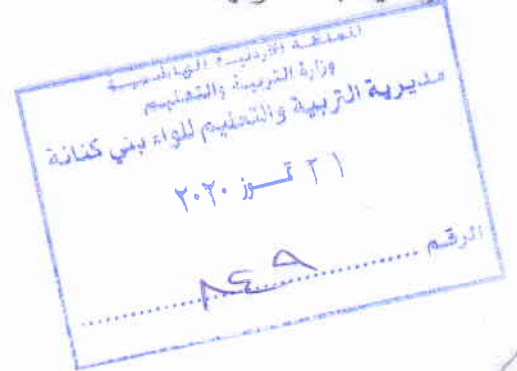 المملكة الأردنية الهاشمية
وزارة التربية والتعليم
مديرية التربية والتعليم للواء بني كنانة
٢١ تموز ٢٠٢٠
الرقم ٨٤٩